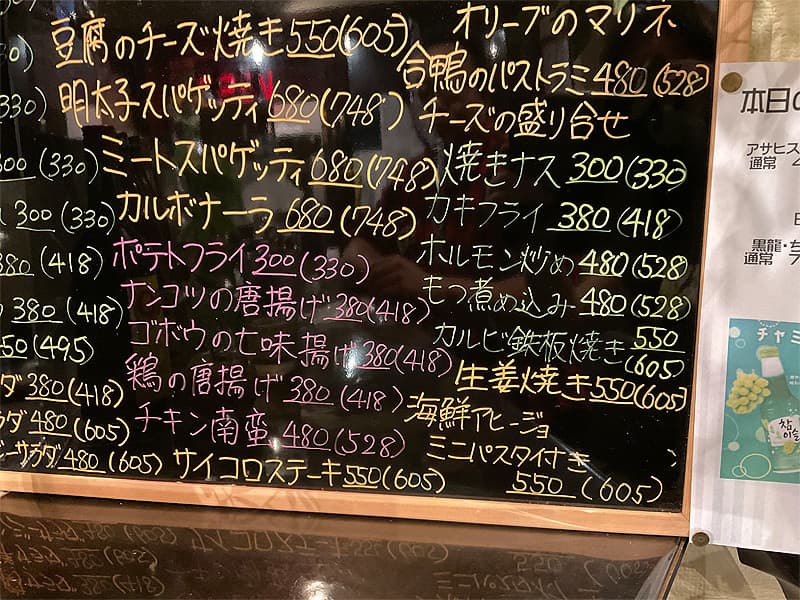 豆腐のチーズ焼き 550(605)
明太子スパゲッティ 680(748)
ミートスパゲッティ 680(748)
カルボナーラ 680(748)
ポテトフライ 300(330)
ナンコツの唐揚げ 380(418)
ゴボウの七味揚げ 380(418)
鶏の唐揚げ 380(418)
チキン南蛮 480(528)
サイコロステーキ 550(605)
オリーブのマリネ
合鴨のパストラミ 480(528)
チーズの盛り合せ
焼きナス 300(330)
カキフライ 380(418)
ホルモン炒め 480(528)
もつ煮め込み 480(528)
カルビ鉄板焼き 550
(605)
生姜焼き 550(605)
海鮮アヒージョ
ミニパスタイ付き
550 (605)
(330)
300(330)
300(330)
380(418)
380(418)
50(495)
ダ 380(418)
ラダ 480(605)
サラダ 480(605)
本日の
アサヒス
通常
黒龍・ち
通常
チャミ
참이슬